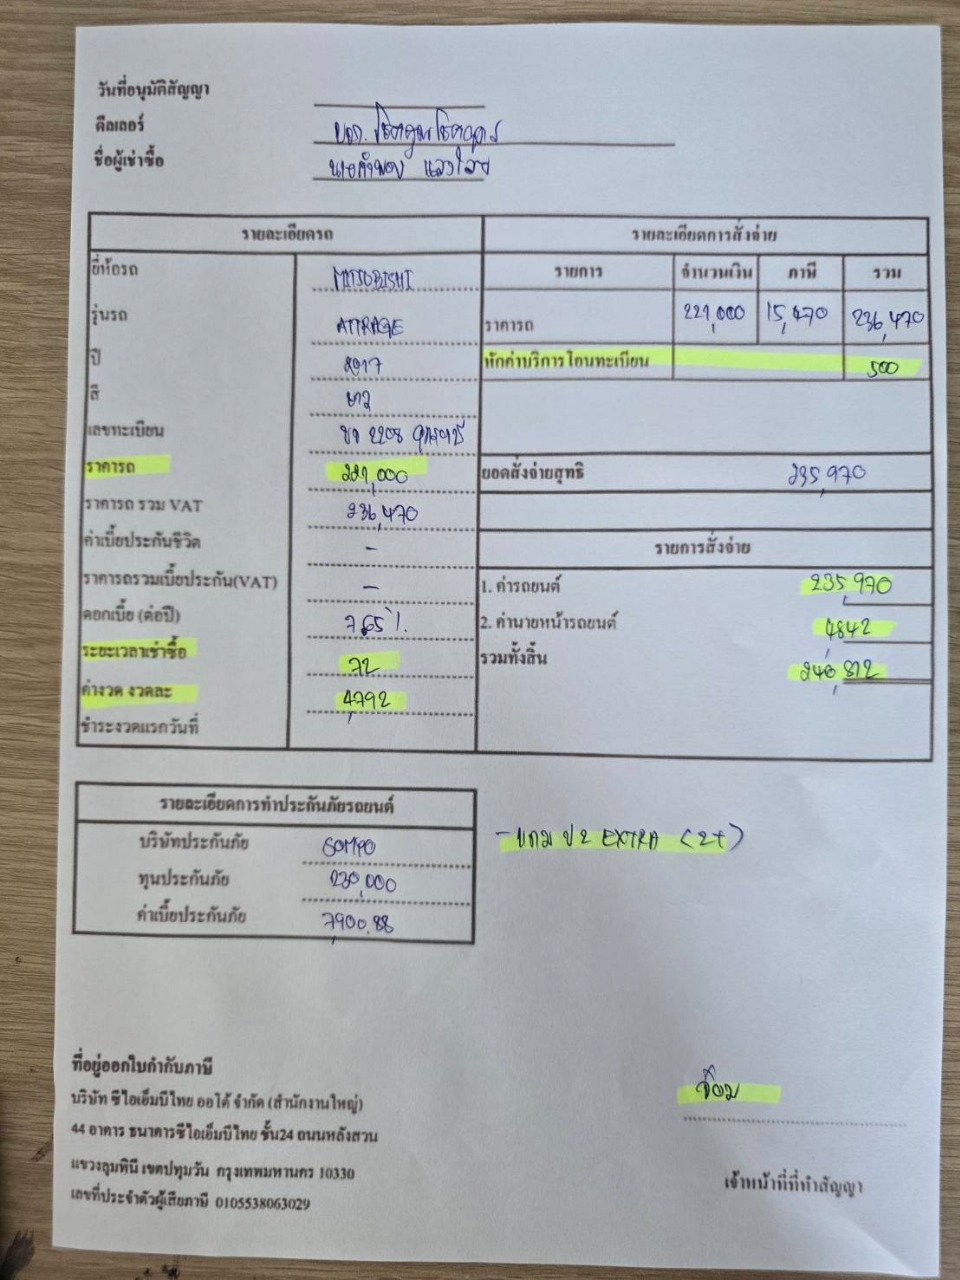 วันที่อนุมัติสัญญา
ดีลเลอร์ บจก. โชคคูณโชคถาวร
ชื่อผู้เช่าซื้อ นายคำพอง
รายละเอียดรถ
ยี่ห้อรถ MITSUBISHI
รุ่นรถ ATTRAGE
ปี 2017
สี ขาว
เลขทะเบียน 2208 อุดรธานี
ราคารถ 221,000
ราคารถ รวม VAT 236,470
ค่าเบี้ยประกันชีวิต -
ราคารถรวมเบี้ยประกัน(VAT) -
ดอกเบี้ย (ต่อปี) 7.65 %
ระยะเวลาเช่าซื้อ 72
ค่างวด งวดละ 4,792
ชำระงวดแรกวันที่
รายละเอียดการสั่งจ่าย
รายการ จำนวนเงิน ภาษี รวม
ราคารถ 221,000 15,470 236,470
หักค่าบริการโอนทะเบียน 500
ยอดสั่งจ่ายสุทธิ 235,970
รายการสั่งจ่าย
1. ค่ารถยนต์ 235,970
2. ค่านายหน้ารถยนต์ 4,842
รวมทั้งสิ้น 240,812
รายละเอียดการทำประกันภัยรถยนต์
บริษัทประกันภัย SOMPO
ทุนประกันภัย 230,000
ค่าเบี้ยประกันภัย 7,900.88
- แถม ป2 EXTRA (2+)
ที่อยู่ออกใบกำกับภาษี
บริษัท ซีไอเอ็มบีไทย ออโต้ จำกัด (สำนักงานใหญ่)
44 อาคาร ธนาคารซีไอเอ็มบีไทย ชั้น24 ถนนหลังสวน
แขวงลุมพินี เขตปทุมวัน กรุงเทพมหานคร 10330
เลขที่ประจำตัวผู้เสียภาษี 0105538063029
จ๊อม
เจ้าหน้าที่ที่ทำสัญญา